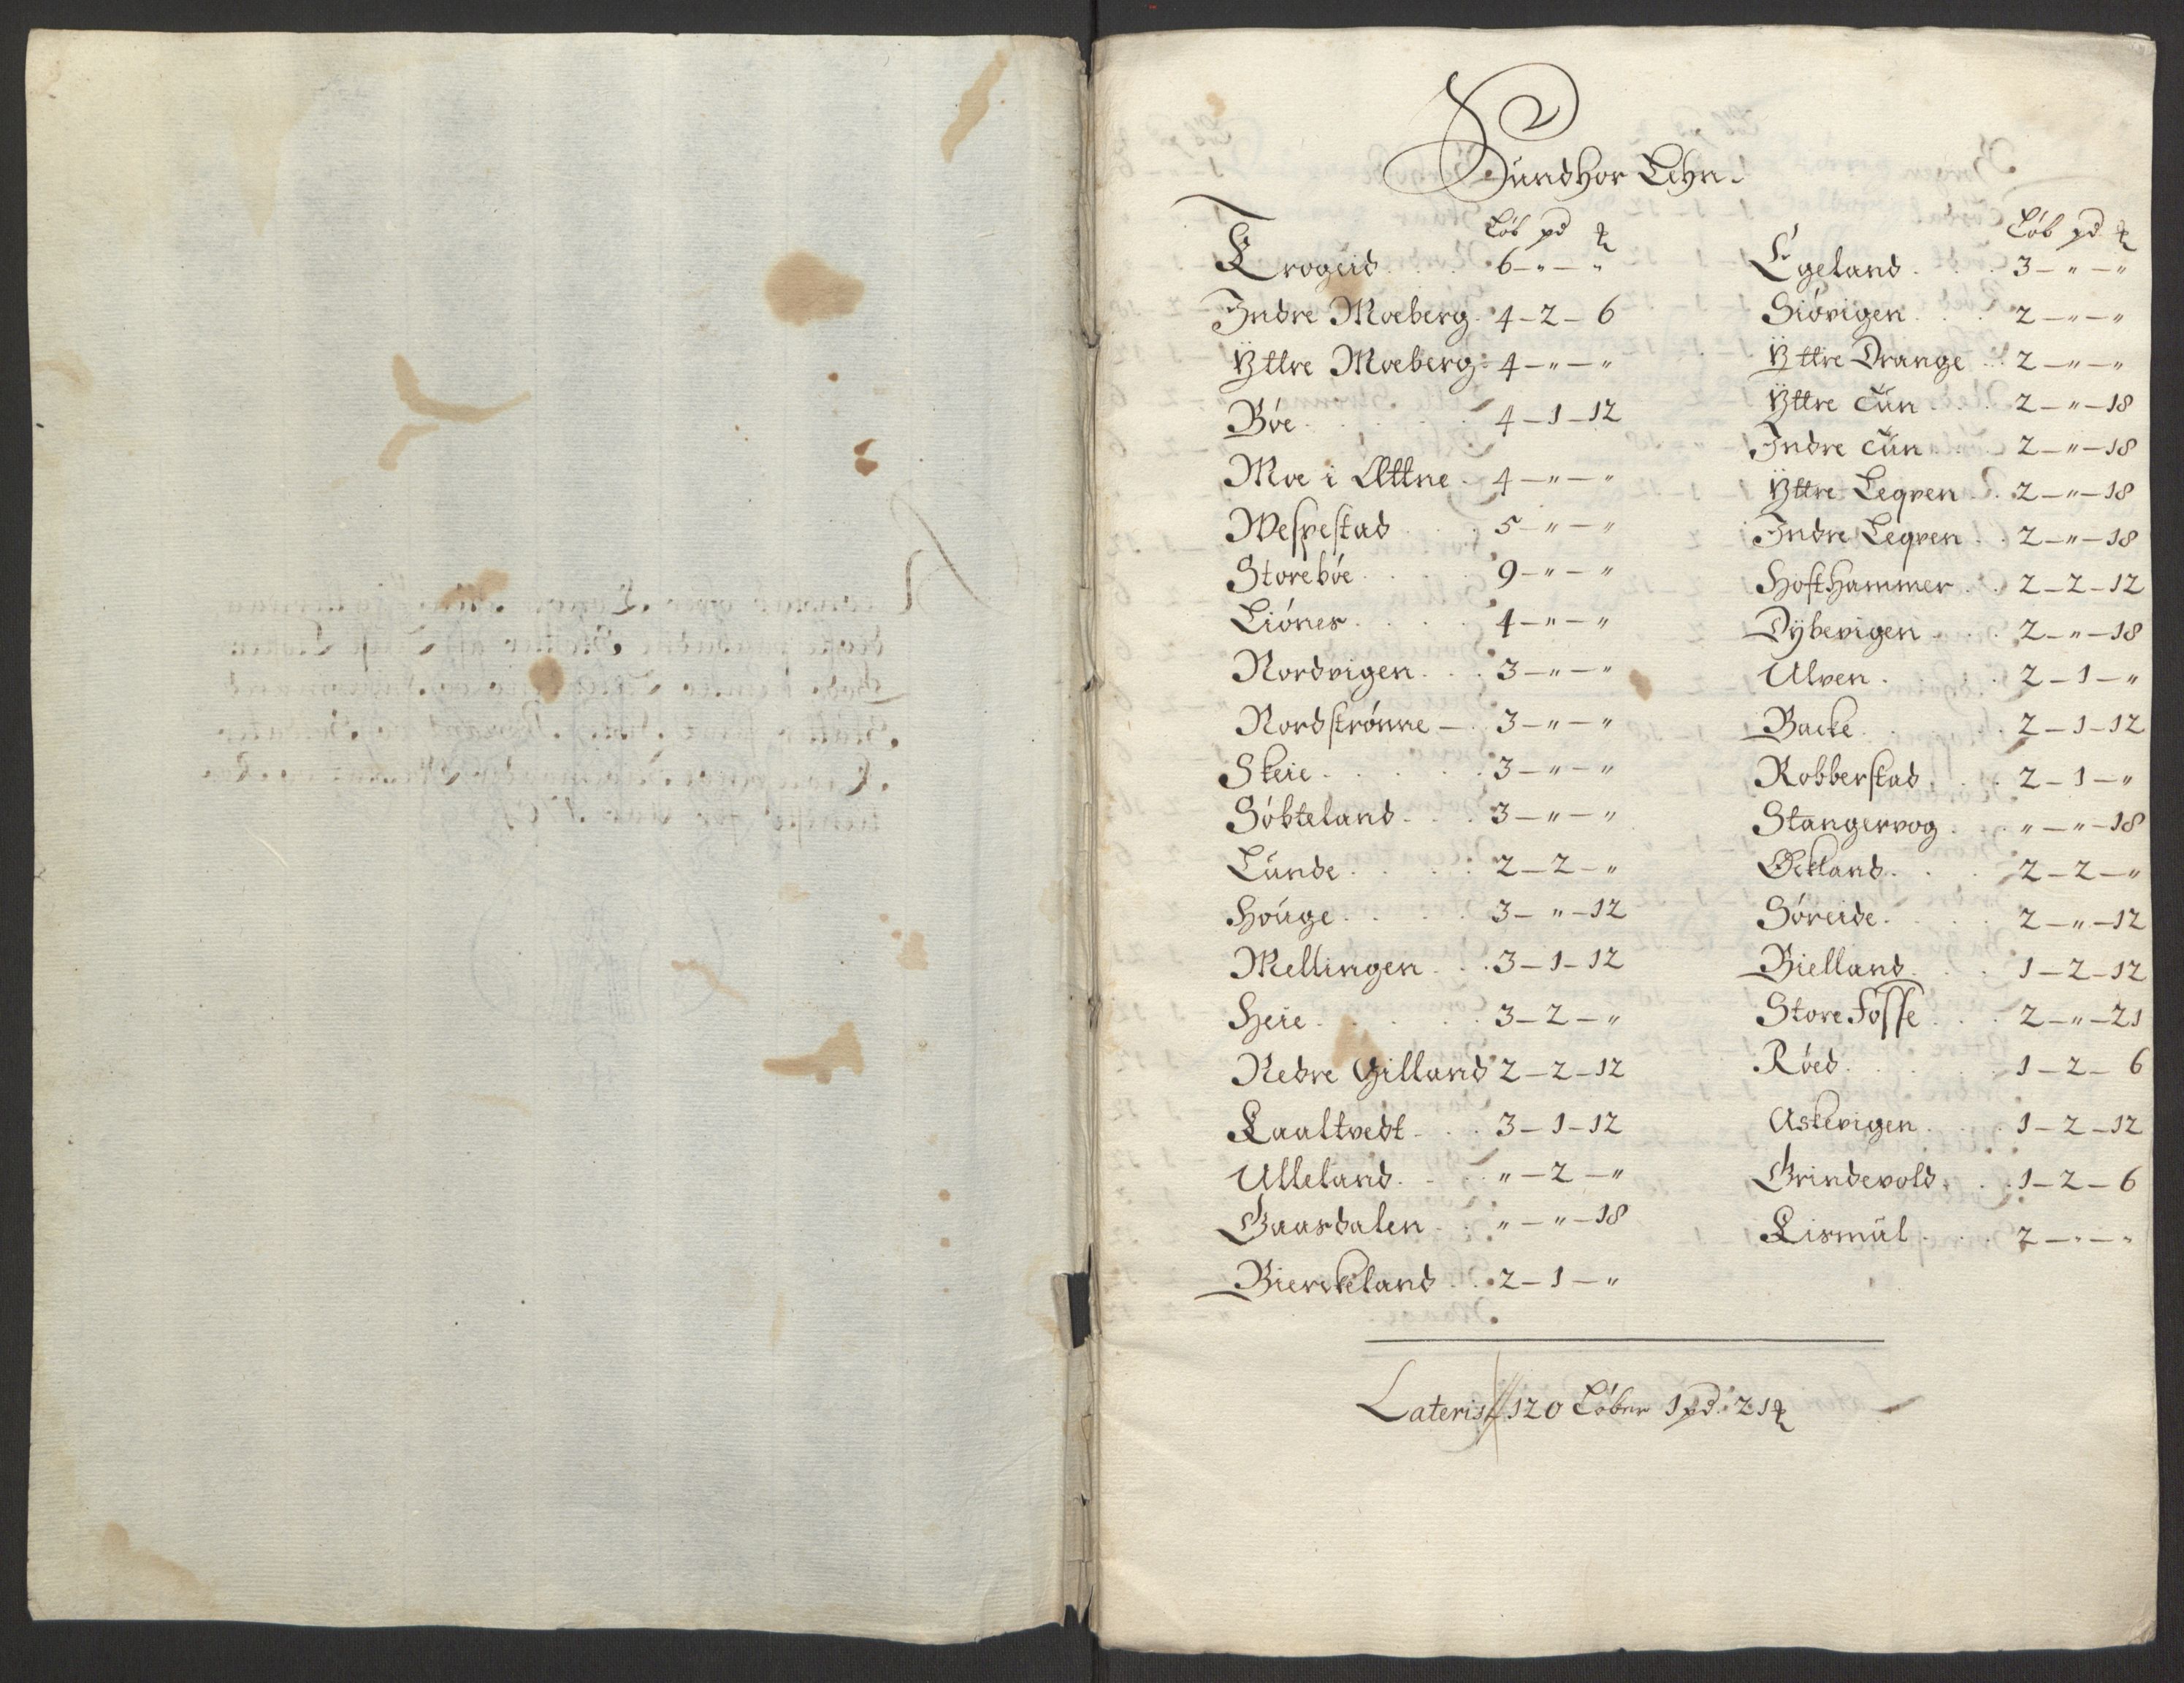 Sundhor Lehn.
Løb pd ℔
Trogeid . . . 6 - " - "
Indre Moeberg . 4 - 2 - 6
Ÿttre Moeberg . 4 - " - "
Bøe . . . . . 4 - 1 - 12
Moe i Ættne . 4 - " - "
Wespestad . . . 5 - " - "
Storebøe . . . 9 - " - "
Liønes . . . . 4 - " - "
Nordvigen . . . 3 - " - "
Nordstrønne - . 3 - " - "
Skeie . . . . . 3 - " - "
Søbteland . . . 3 - " - "
Lunde . . . . . 2 - 2 - "
Houge . . . . 3 - " - 12
Mellingen . . . 3 - 1 - 12
Heie . . . . . 3 - 2 - "
Nedre Gilland 2 - 2 - 12
Laaltvedt . . . 3 - 1 - 12
Ulleland . . . " - 2 - "
Gaardalen . . " - " - 18
Bierckeland . . 2 - 1 - "
Løb pd ℔
Egeland . . . 3 - " - "
Siøvigen . . . 2 - " - "
Ÿttre Drange . . 2 - " - "
Ÿttre Tun . . 2 - " - 18
Indre Tun . . 2 - " - 18
Ÿttre Leqven . . 2 - " - 18
Indre Leqven . . 2 - " - 18
Hofthammer . . 2 - 2 - 12
Dÿbevigen . . . 2 - " - 18
Ulven . . . 2 - 1 - "
Backe . . . . 2 - 1 - 12
Robberstad . . . 2 - 1 - "
Stangervog . . " - " - 18
Øckland . . . 2 - 2 - "
Søreide . . . . 2 - " - 12
Bielland . . . 1 - 2 - 12
Store Fosse . . . 2 - " - 21
Røed . . . . . 1 - 2 - 6
Askevigen . . . 1 - 2 - 12
Grindevold . . . 1 - 2 - 6
Lismul . . . 2 - " - "
Lateris 120 Løber 1 pd. 21 ℔